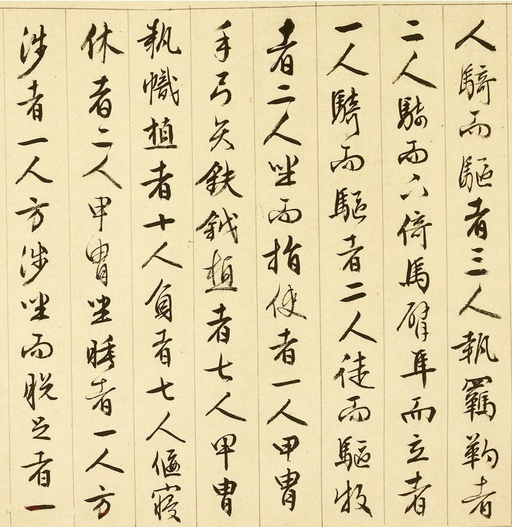 人騎而驅者三人執羈靮者
二人騎而下倚馬臂隼而立者
一人騎而驅者二人徒而驅牧
者二人坐而指使者一人甲胄
手弓矢鈇鉞植者七人甲胄
執幟植者十人負者七人偃寢
休者二人甲胄坐睡者一人方
涉者一人方涉坐而脫足者一